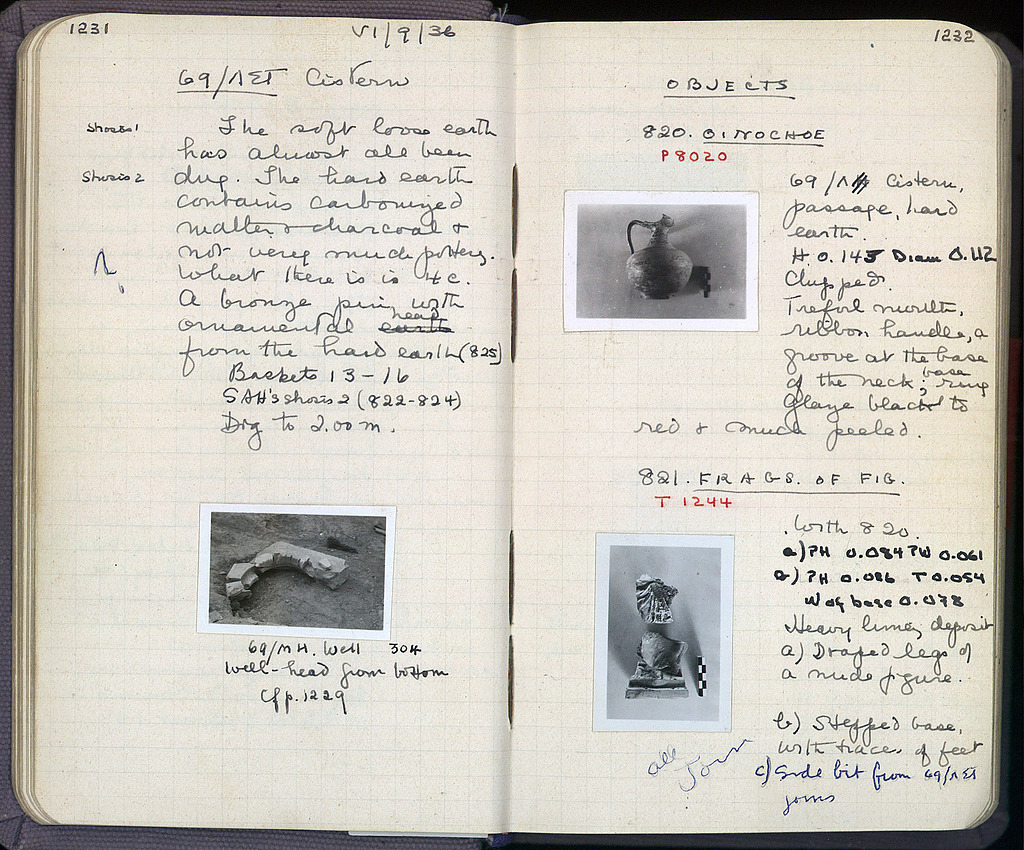 1231
VI/9/36
69/ΛΣΤ Cistern
Shoebox 1
The soft loose earth
has almost all been
Shoebox 2
dug. The hard earth
contains carbonized
matter & charcoal &
not very much pottery.
What there is is 4c.
A bronze pin, with
ornamental earth head
from the hard earth (825)
Baskets 13-16
(822-824)
Dig to 2.00 m.
69/ΜΗ. Well 304
Well-head from bottom
Cf p. 1229
1232
OBJECTS
820. OINOCHOE
P 8020
69/Λ Cistern,
passage, hard
earth.
H 0.145 Diam 0.112
Chipped.
Trefoil mouth,
ribbon handle, a
groove at the base
of the neck; ring base
Glaze black to
red & much peeled.
821. FRAGS. OF FIG.
T 1244
With 820.
a) PH 0.084 PW 0.061
PH 0.086 T 0.054
W of base 0.078
Heavy limey deposit
a) Draped legs of
a nude figure.
b) Stepped base,
with traces of feet
all join
c) Side bit from 69/ΛΣΤ
joins